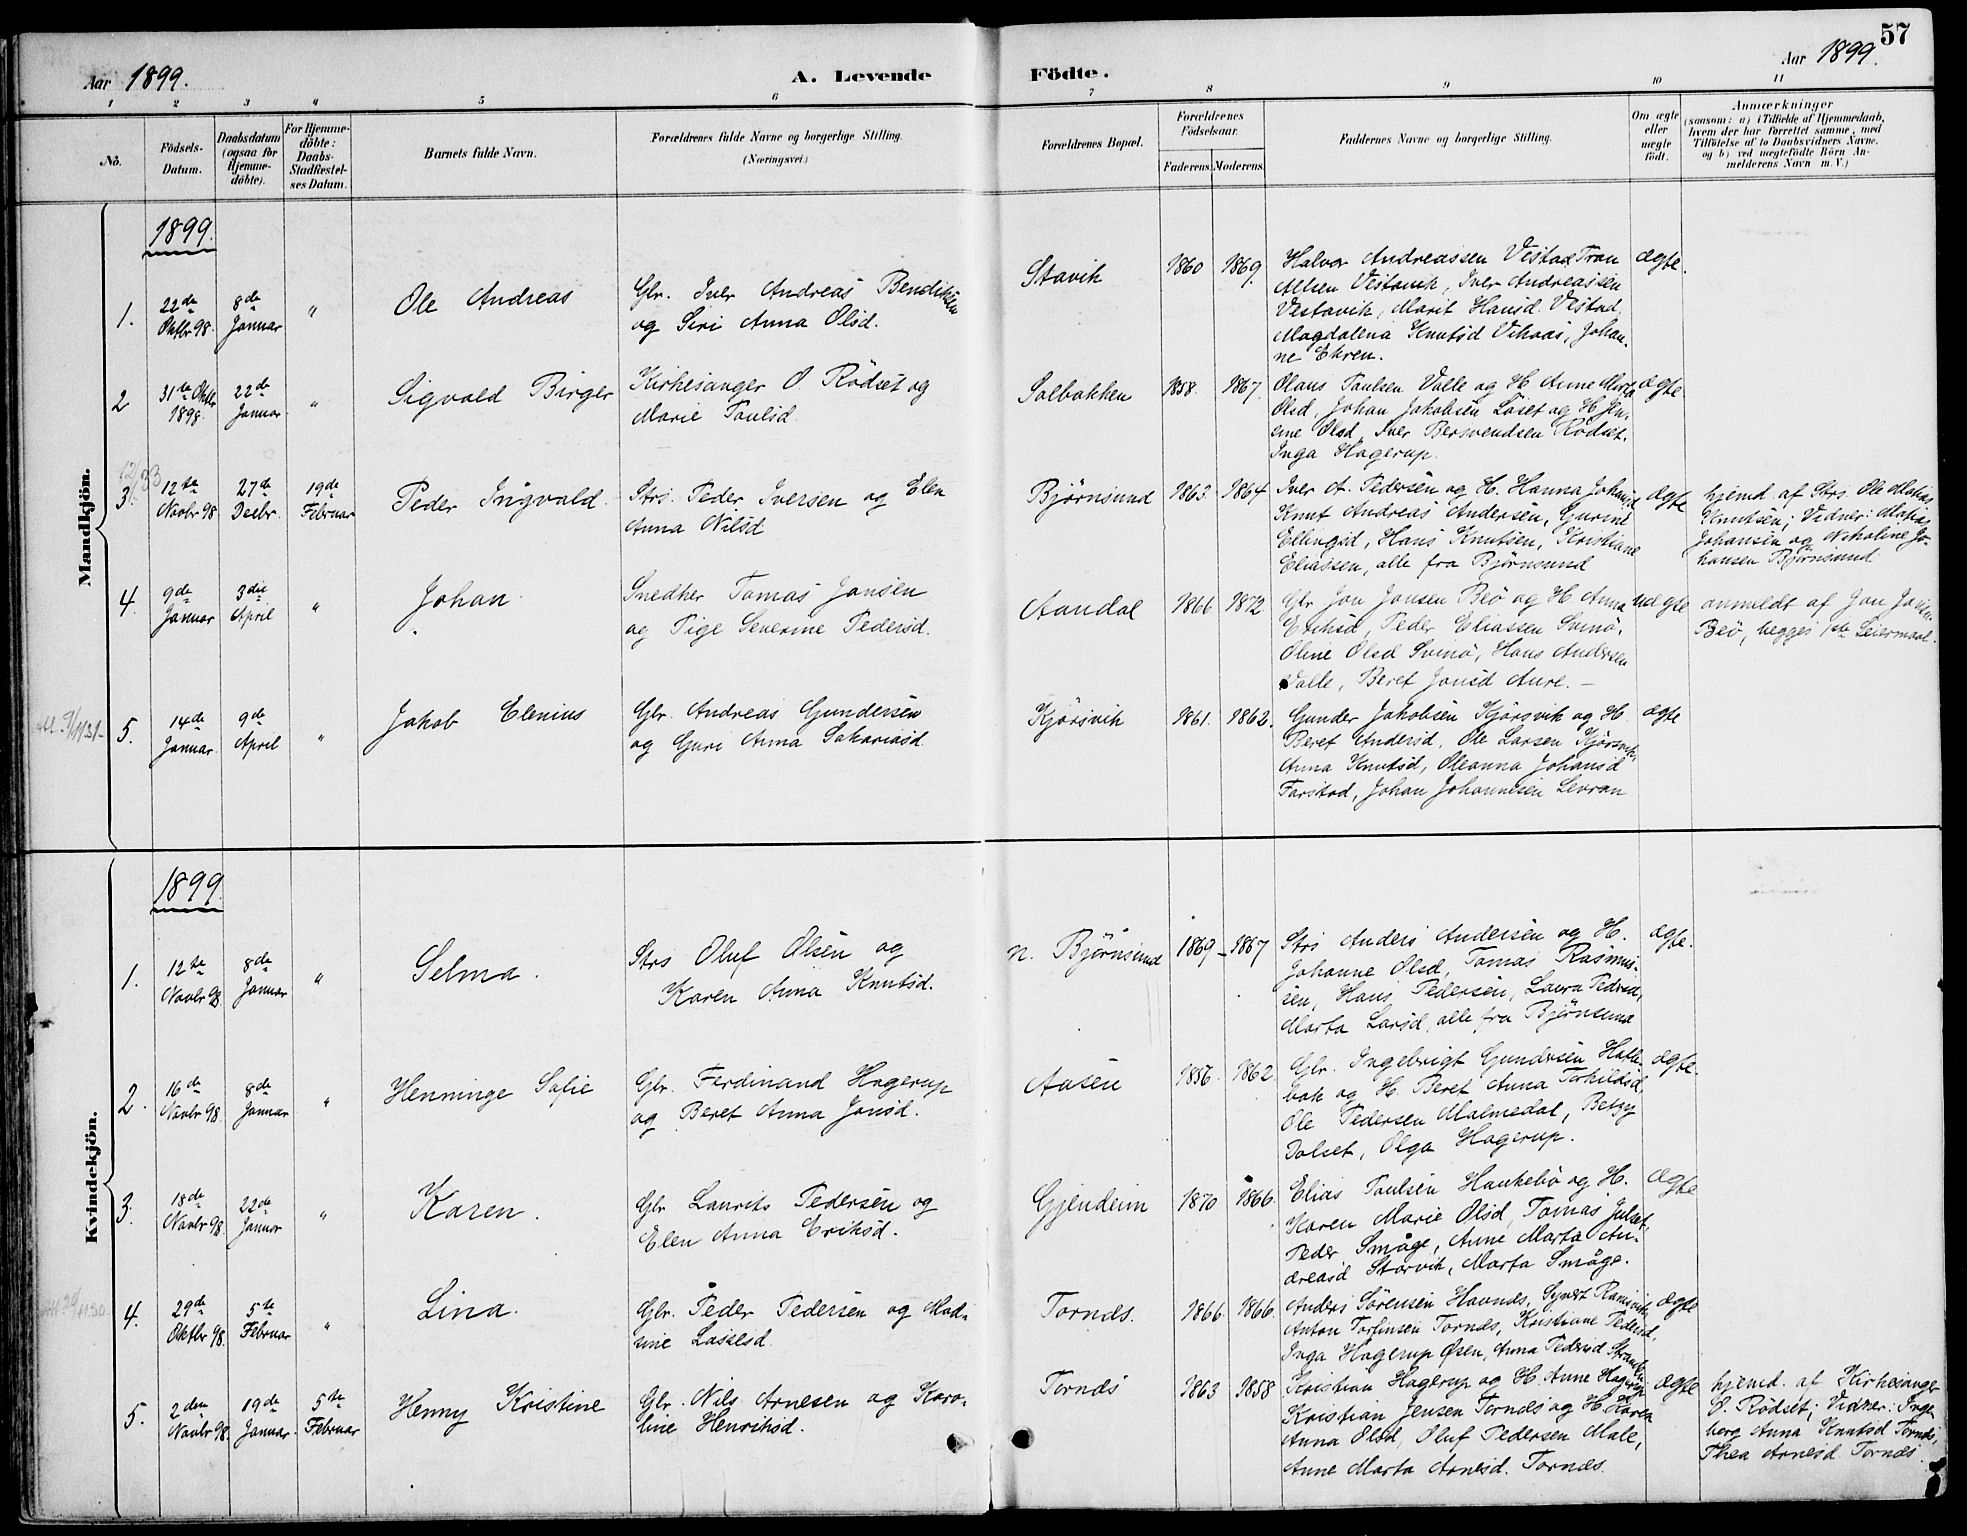 57
Aar 1899.
A. Levende Födte.
Aar 1899.
1 2 3 4 5 6 7 8 9 10 11
No.
Födsels-
Datum.
Daabsdatum
(ogsaa for
Hjemme-
döbte).
For Hjemme-
döbte:
Daabs-
Stadfæstel-
ses Datum.
Barnets fulde Navn.
Forældrenes fulde Navne og borgerlige Stilling.
(Næringsvei.)
Forældrenes Bopæl.
Forældrenes
Födselsaar.
Faderens. Moderens.
Faddernes Navne og borgerlige Stilling.
Om ægte
eller
uægte
födt.
Anmærkninger
(saasom: a) i Tilfælde af Hjemmedaab,
hvem der har forrettet samme, med
Tilföielse af to Daabsvidners Navne.
og b) ved uægtefödte Börn An-
melderens Navn m. V.)
Mandkjön.
1899.
1.
22de
Oktbr 98.
8de
Januar
"
Ole Andreas
Gbr. Iver Andreas Bendiksen
og Siri Anna Olsd.
Stavik
1860
1869.
Halvor Andreassen Vestad, Tron
Aslsen Vestavik, Iver Andreassen
Vestavik, Marit Hansd. Vestad,
Magdalena Knutsd Vikaas, Johan-
ne Ekren.
ægte.
2
31te Oktbr
1898.
22de
Januar
"
Sigvald Birger
Kirkesanger O. Rødset og
Marie Paulsd.
Solbakken
1858.
1867.
Olaus Paulsen Valle og H. Anne Marta
Olsd, Johan Jakobsen Löset og H. Jen-
sine Olsd, Iver Bersvendsen Rødset.
Inga Hagerup.
ægte.
3.
12te
Novbr 98
27de
Decbr.
19de
Februar
Peder Ingvald.
Strs. Peder Iversen og Elen
Anna Nilsd
Bjørnsund
1863.
1864
Iver A. Pedersen og H. Hanna Johansd
Knut Andreas Andersen, Gurine
Ellingsd, Hans Knutsen, Kristiane
Eliassen, alle fra Björnsund
ægte
hjemd. af Strs. Ole Matias
Knutsen; Vidner: Matias
Johansen og Nikoline Jo-
hansen Björnsund
4.
9de
Januar
3die
April
"
Johan.
Snedker Tomas Jansen
og Pige Severine Pedersd.
Aandal
1866.
1872
Gbr Jon Jonsen Beö og H Anna
Eriksd, Peder Eliassen Svinö,
Oline Olsd Svinö, Hans Andersen
Valle, Beret Jonsd Aure. —
uægte
anmeldt af Jon Jonsen
Beö, begges 1ste Leiermaal.
5.
14de
Januar.
9de
April
"
Jakob Elenius
Gbr. Andreas Gundersen
og Guri Anna Sakariasd.
Kjörsvik
1861.
1862.
Gunder Jakobsen Kjörsvik og H.
Beret Andersd, Ole Larsen Kjörsvik,
Anna Knutsd, Oleanna Johansd
Farstad, Johan Johannesen Levran
ægte
Kvindekjön.
1899.
1.
12te
Novbr 98
8de
Januar
"
Selma.
Strs Oluf Olsen og
Karen Anna Knutsd.
n. Björnsund
1869 -
1867
Strs Anders Andersen og H.
Johanne Olsd, Tomas Rasmus-
sen, Hans Pedersen, Laura Pedersd,
Marta Larsd, alle fra Björnsund
ægte.
2.
16de
Novbr 98.
8de
Januar
"
Henninge Sofie
Gbr. Ferdinand Hagerup
og Beret Anna Jonsd.
Aasen
1856.
1862.
Gbr. Ingebrigt Gundersen Hatle-
bak og H. Beret Anna Torkildsd,
Ole Pedersen Malmedal, Betzy
Dalset, Olga Hagerup.
ægte.
3.
18de
Novbr 98.
22de
Januar
"
Karen.
Gbr Laurits Pedersen og
Elen Anna Eriksd.
Gjendeim
1870
1866.
Elias Paulsen Haukebö og H.
Karen Marie Olsd, Tomas Julset,
Peder Småge, Anne Marta An-
dreasd Storvik, Marta Småge.
ægte
4.
29de
Oktbr 98.
5te
Februar
"
Lina.
Gbr. Peder Pedersen og Mod-
sine Lassesd.
Tornæs.
1866.
1866.
Anders Sörensen Havnæs, Syvert Ramsvik,
Anton Torfinsen Tornæs, Kristiane Pedersd,
Inga Hagerup Ösen, Anna Pedersd
ægte
5.
2den
Novbr 98.
19de
Januar.
5te
Februar
Henny Kristine
Gbr. Nils Arnesen og Karo-
line Henriksd.
Tornæs
1863
1858
Kristian Hagerup og H. Anne Hagerup,
Kristian Jensen Tornæs og H. Karen
Anna Olsd, Oluf Pedersen Male,
Anne Marta Arnesd. Tornæs.
ægte
hjemd. af Kirkesanger
O. Rödset; Vidner: Inge-
borg Anna Knutsd Tornæs,
Thea Arnesd Tornæs.